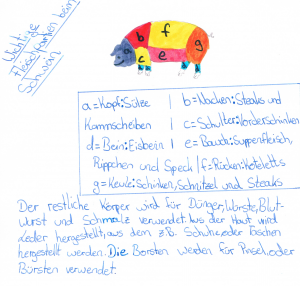 Wichtige
Fleischpartien beim
Schwein
b
f
g
a
c
e
d
a=Kopf:Sülze | b=Nacken:Steaks und
Kammscheiben | c=Schulter:Vorderschinken
d=Bein:Eisbein | e=Bauch:Suppenfleisch,
Rippchen und Speck | f=Rücken:Koteletts
g=Keule:Schinken, Schnitzel und Steaks
Der restliche Körper wird für Dünger, Würste, Blut-
wurst und Schmalz verwendet. Aus der Haut wird
Leder hergestellt, aus dem z.B. Schuhe, oder Taschen
hergestellt werden. Die Borsten werden für Pinsel, oder
Bürsten verwendet.